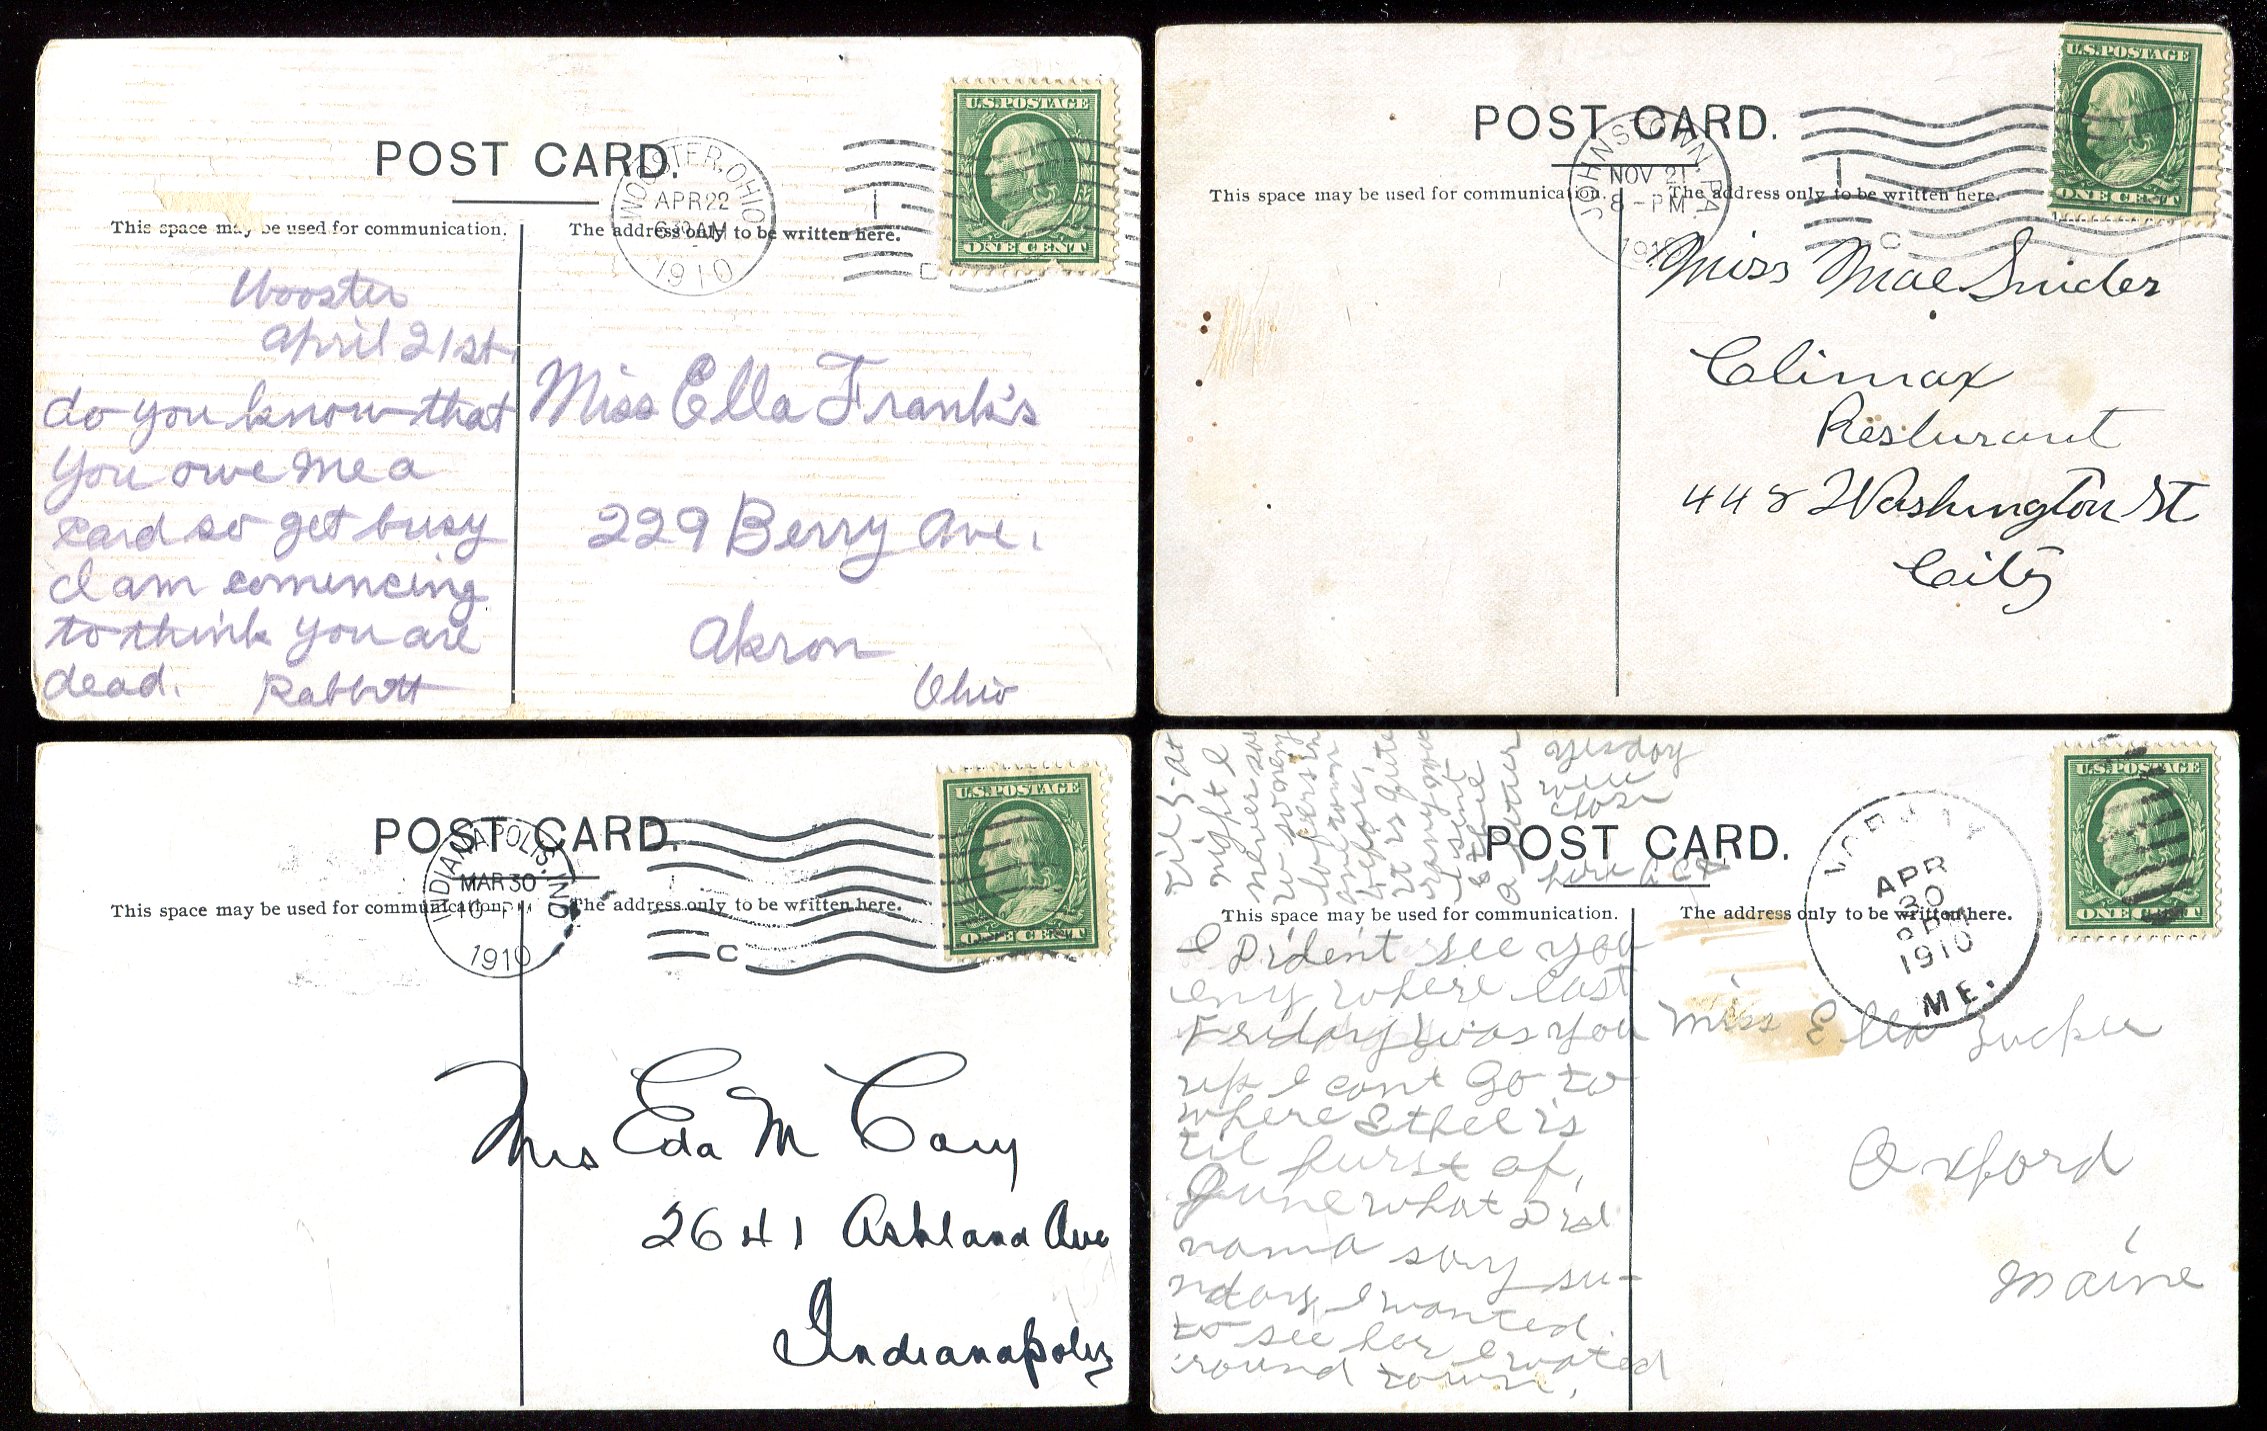 POST CARD.
WOOSTER, OHIO
APR 22
6 30 AM
1910
U.S. POSTAGE
ONE CENT
This space may be used for communication.
The address only to be written here.
Wooster
April 21st
do you know that
you owe me a
card so get busy
I am comencing
to think you are
dead. Rabbitt
Miss Ella Frank's
229 Berry Ave.
Akron
Ohio
POST CARD.
JOHNSTOWN, PA
NOV 21
8 - PM
1910
U.S. POSTAGE
ONE CENT
This space may be used for communication.
The address only to be written here.
Miss Mae Snider
Climax
Resturant
448 Washington St
City
POST CARD.
INDIANAPOLIS, IND
MAR 30
1910
C
U.S. POSTAGE
ONE CENT
This space may be used for communication.
The address only to be written here.
Mrs Eda M Cary
2641 Ashland Ave
Indianapolis
POST CARD.
NORWAY
APR
30
1910
ME.
U.S. POSTAGE
ONE CENT
This space may be used for communication.
The address only to be written here.
night I
never saw
so many
before,
it is quite
will
close
here
I Dident see you
eny where last
Friday was you
up I cant Go to
where Ethel is
til furst of,
June what Did
mama say su-
nday I wanted
to see her I
round town.
Miss Ella
Oxford
Maine